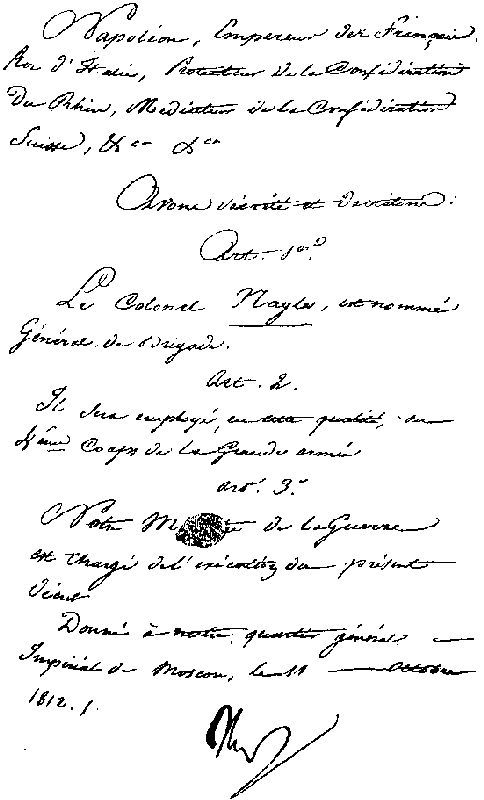 Napoléon, Empereur des Français,
Roi d'Italie, Protecteur de la Confédération
Du Rhin, Médiateur de la Confédération
Suisse, &ca &ca
Avons décrété et décrétons:
Art. 1er.
Le Colonel Nagles, est nommé
Général de brigade.
Art. 2.
Il sera employé, en cette qualité, au
Corps de la Grande armée
art. 3.
Notre M de la Guerre
est chargé de l'exécution du présent
décret
Donné à notre quartier général
Impérial de Moscou, le 11 Octobre
1812.